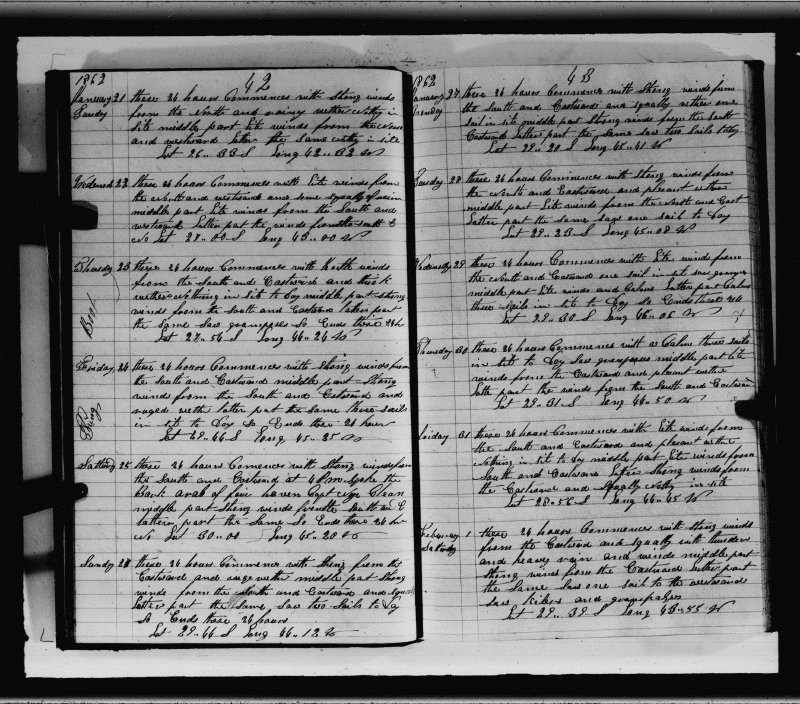 1862 42
January 21 these 24 hours Commences with Strong winds
Sunday from the North and rainy wether nothing in
site middle part lite winds from the North
and westward latter the same nothing in site
Lat 26.. 33 S Long 42.. 32 W
Wedensd 22 these 24 hours Commences with Lite winds from
the North and westward and some squally of rain
middle part Lite winds from the South and
westward Latter part the winds from the south E
No Lat 27.. 00 S Long 43.. 00 W
Thursday 23 these 24 hours Commences with winds
from the South and Eastward and thick
wether nothing in sit to Day middle part strong
winds from the South and Eastward latter part
the Same Saw grampases So Ends these 24 hr
Lat 27.. 54 S Long 44.. 24 W
Friday 24 these 24 hours Commences with Strong winds from
the South and Eastward middle part Strong
winds from the South and Eastward and
ruged wether latter part the same three Sails
in sit to Day So Ends these 24 hours
Lat 29.. 44 S Long 45.. 25 W
Satturday 25 these 24 hours Comences with Strong winds from
the South and Eastward at 4 Pm Spoke the
Bark of fair haven Capt
middle part Strong winds from the South and E
latter part the Same So Ends these 24 hr
No Lat 30.. 00 Long 45.. 20 W
Sunday 26 these 24 hours Commences with Strong from the
Eastward and ruge wether middle part Strong
winds from the South and Eastward and squall
latter part the Same Saw two Sails to Day
So Ends these 24 hours
Lat 29.. 44 S Long 44.. 12 W
1862 43
January 27 these 24 hours Commences with Strong winds from
the South and Eastward and squally wether one
sail in sit middle part Strong winds from the South
Eastward latter part the Same Saw two Sails to Day
Lat 29.. 20 S Long 45.. 41 W
28 these 24 hours Commences with Strong winds from
the North and Eastward and plesant wether
middle part Lite winds from the North and East
Latter part the same Saw one Sail to Day
Lat 29.. 23 S Long 45.. 08 W
Wedensday 29 these 24 hours Commences with Lite winds from
the North and Eastward one sail in sit
middle part Lite winds and Calms Latter part Calms
three Sails in sit to Day So Ends these 24
Lat 29.. 30 S Long 45.. 05 W
Thursday 30 these 24 hours Commences with a Calms three Sails
in sit to Day Saw grampases middle part lite
winds from the Eastward and plesant wether
latter part the winds from the South and Eastward
Lat 29.. 31 S Long 44.. 50 W
Friday 31 these 24 hours Commences with Lite winds from
the South and Eastward and plesant wether
nothing in sit to Day middle part Lite winds from
South and Eastward Latter Strong winds from
the Eastward and Squally nothing in site
Lat 28.. 56 S Long 44.. 45 W
February 1 these 24 hours Commences with Strong winds
Saturday from the Eastward and squally with thunder
and heavy rain and winds middle part
Strong winds from the Eastward latter part
the Same Saw one sail to the westward
Saw Kilers and grampases
Lat 29.. 39 S Long 45.. 55 W